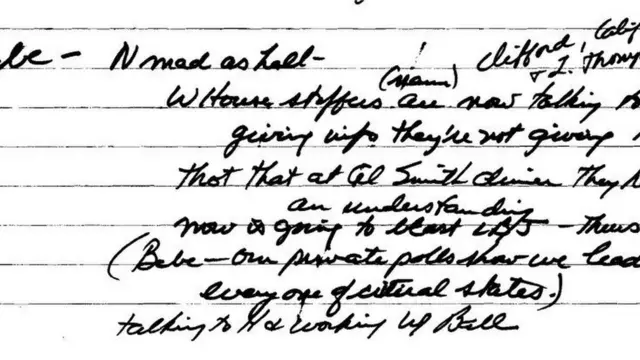 Clifford,
ebe – N mad as hell –
W House staffers are now talking to
giving info they're not giving
thot that at Al Smith dinner they
an understanding
now is going to blast LBJ – Thurs
(Bebe – Our private polls show we lead
every one of critical states.)
talking to H & working up Ball